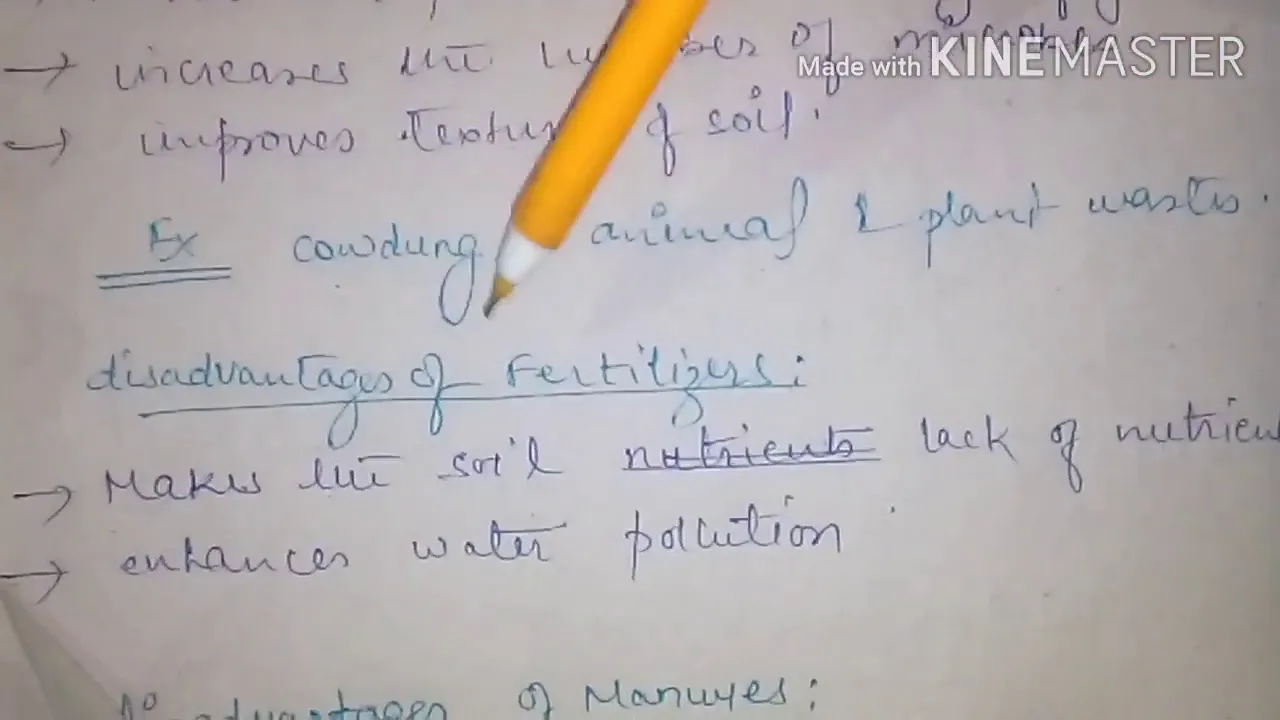 → increases the of
Made with KINEMASTER
→ improves of soil.
Ex cowdung animal & plant wastes.
disadvantages of Fertilizers:
→ Makes the soil nutrients lack of nutrien
→ enhances water pollution
of Manures: